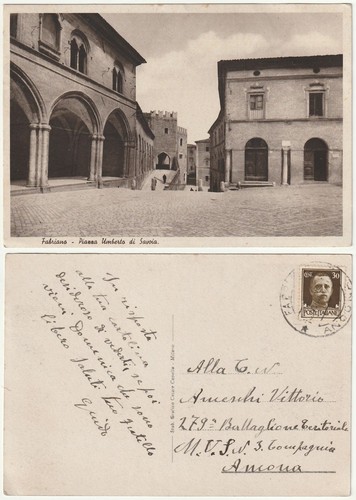 Fabriano - Piazza Umberto di Savoia.
In risposta
alla tua cartolina
desideroso di vederti se poi
vieni Domenica che sono
libero Saluti tuo fratello
Guido
30 30
POSTE ITALIANE
FAB
ANCONA
Alla C. N.
Ameschi Vittorio
279ª Battaglione Territoriale
M. V. S. N. 3. Compagnia
Ancona